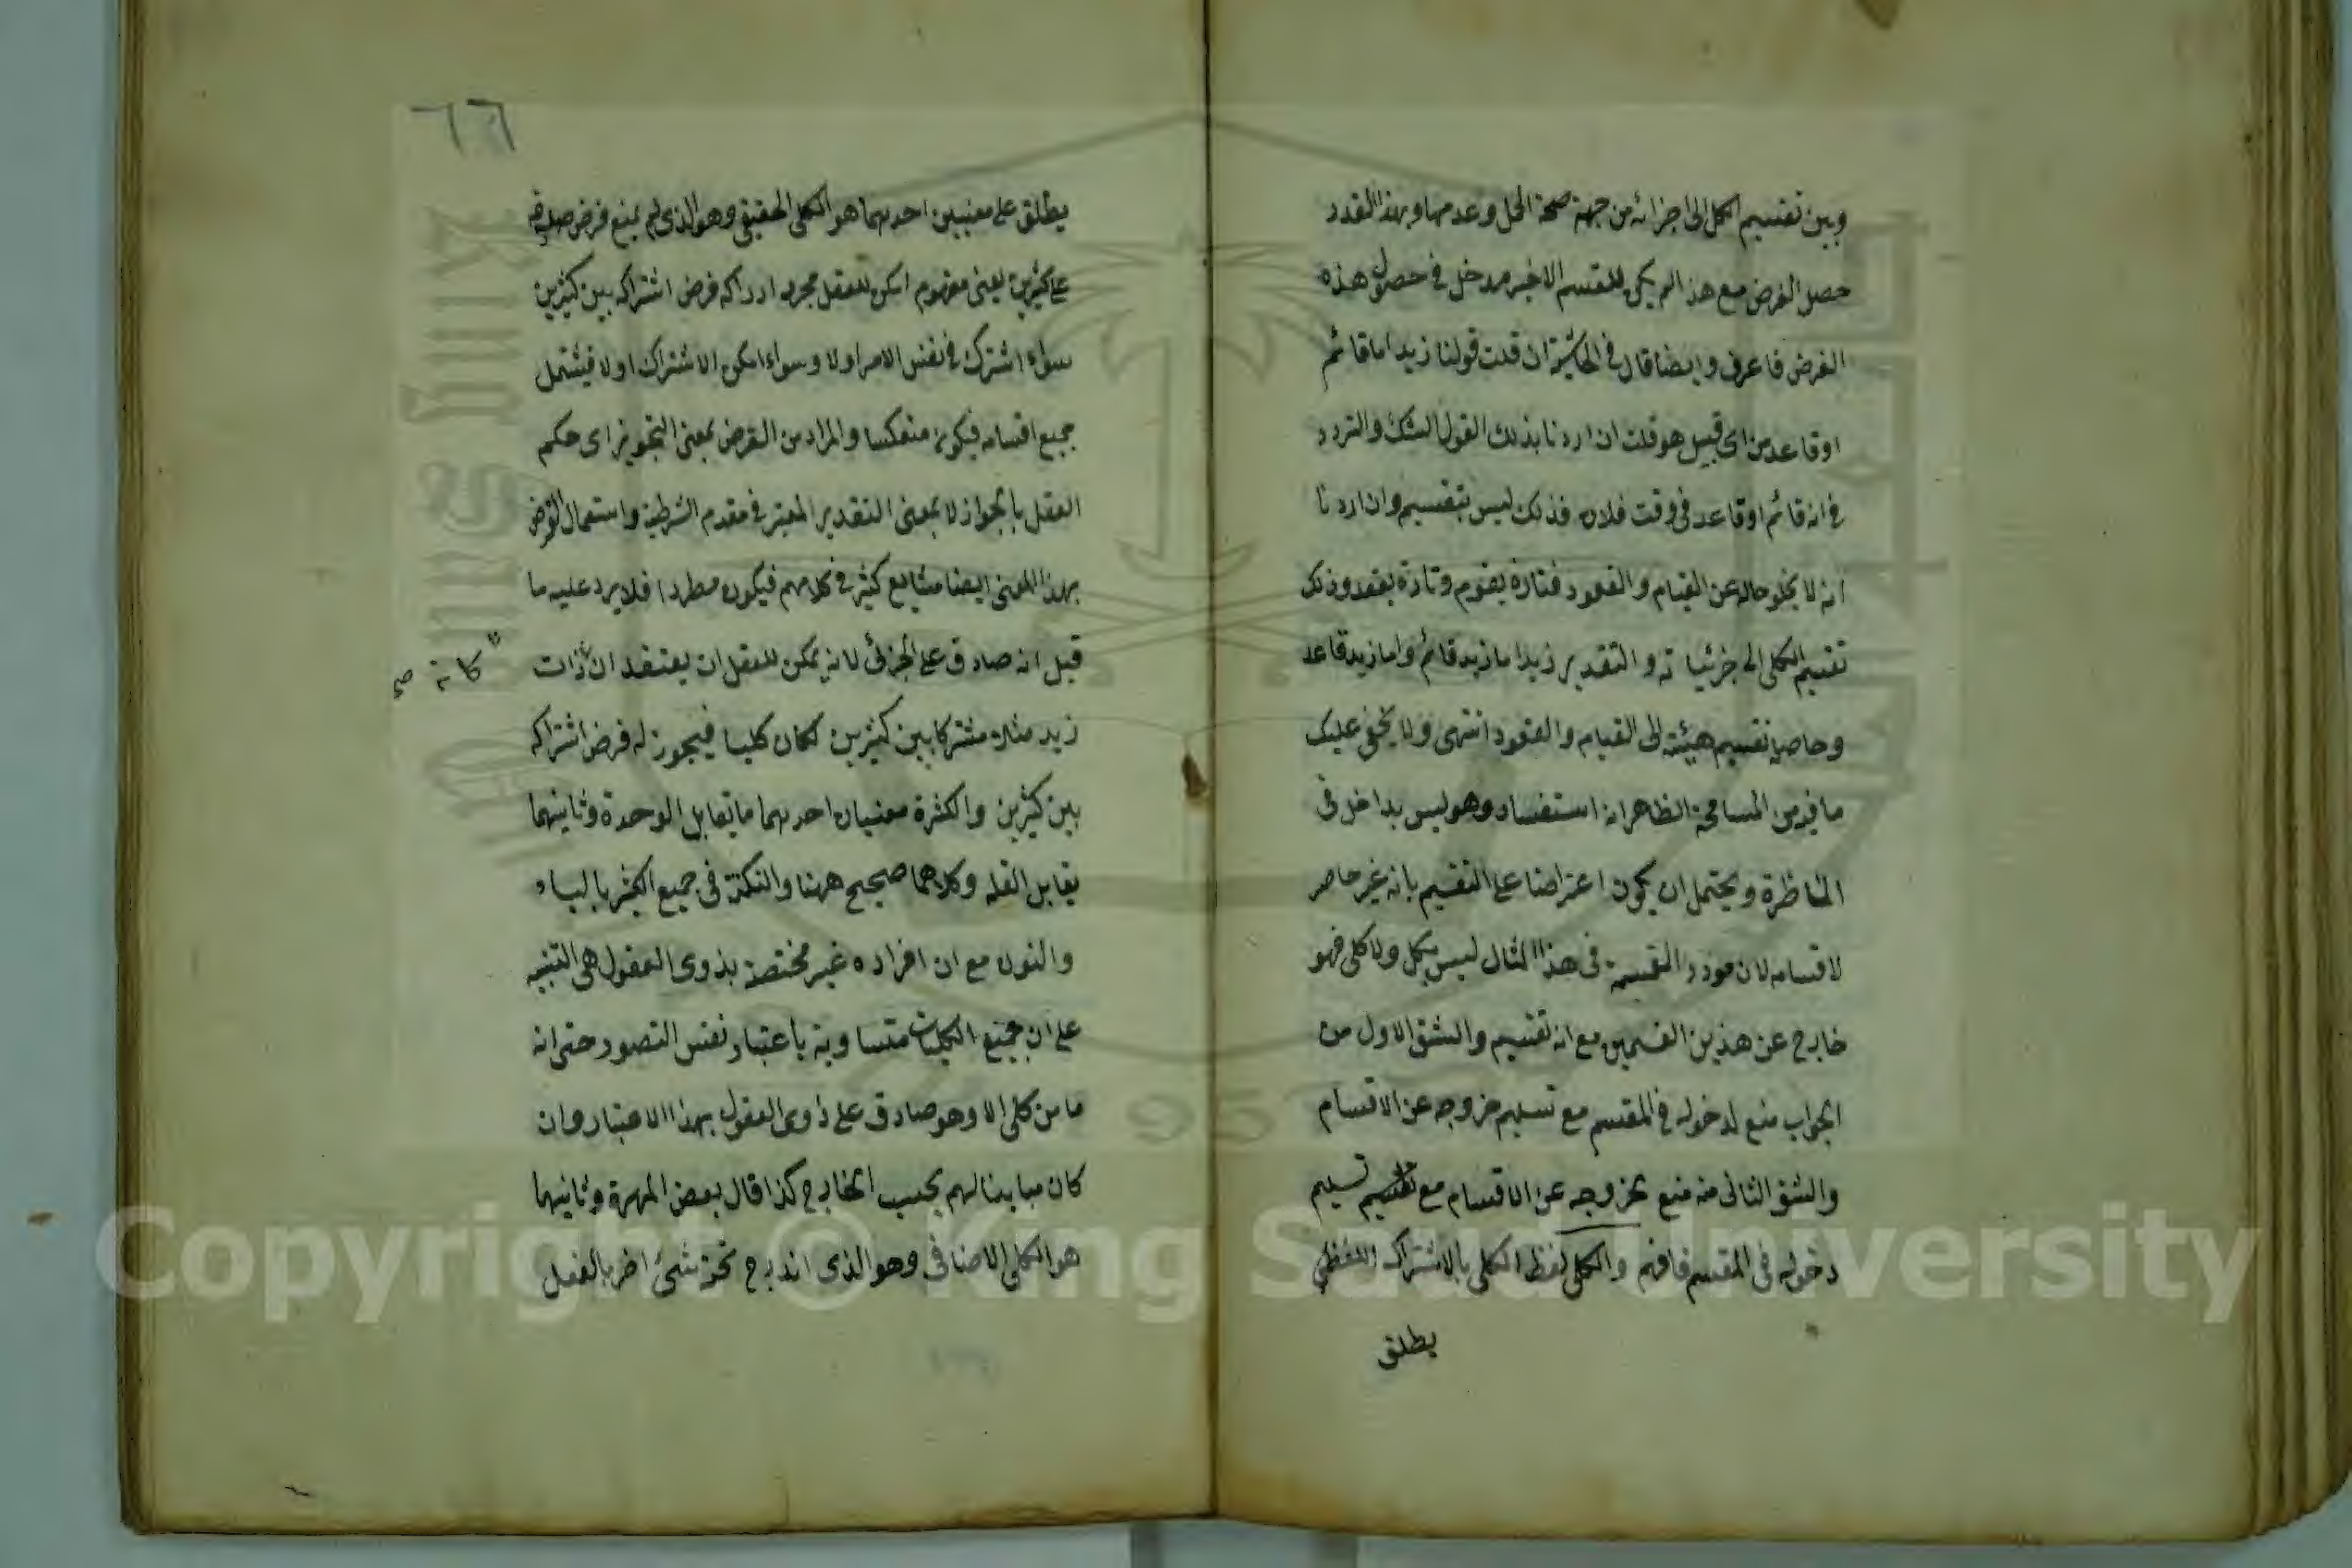 وبين تقسيم الكل الى اجزائه من جهة صحة الحمل وعدمها وبهذا القدر
حصل الغرض مع هذا لم يكن للمقسم الاخير مدخل في حصول هذه
الغرض فاعرف وايضا قال في الحاشية ان قلت قولنا زيد اما قائم
او قاعد من اى قبيل هو قلت ان اردنا بذلك القول الشك والتردد
في انه قائم او قاعد فى وقت فلان فذلك ليس بتقسيم وان اردنا
انه لا يخلو حاله عن القيام والقعود فتارة يقوم وتارة يقعد وذلك
تقسيم الكلى الى جزئياته والتقدير زيد اما زيد قائم واما زيد قاعد
وحاصله تقسيم هيئته الى القيام والقعود انتهى ولا يخفى عليك
ما فيه من المسامحة الظاهر انه استفسار وهو ليس بداخل فى
المناظرة ويحتمل ان يكون اعتراضا على التقسيم بانه غير حاصر
لاقسامه لان مورد القسمة فى هذا المثال ليس بكل ولا كلى فهو
خارج عن هذين القسمين مع انه تقسيم والشق الاول من
الجواب منع لدخوله في المقسم مع تسليم خروجه عن الاقسام
والشق الثانى منه منع لخروجه عن الاقسام مع تسليم
دخوله فى المقسم فافهم والكلى لفظ الكلى بالاشتراك اللفظي
يطلق
٦٦
يطلق على معنيين احدهما هو الكلى الحقيقى وهو الذى لم يمنع فرض صدقه
على كثيرين يعنى مفهوم امكن للعقل بمجرد ادراكه فرض اشتراكه بين كثيرين
سواء اشترك في نفس الامر او لا وسواء امكن الاشتراك او لا فيشتمل
جميع اقسامه فيكون منعكسا والمراد من الفرض بمعنى التجويز اى حكم
العقل بالجواز لا بمعنى التقدير المعتبر في مقدم الشرطية واستعمال الفرض
بهذا المعنى ايضا شايع كثير في كلامهم فيكون مطردا فلا يرد عليه ما
قيل انه صادق على الجزئى لانه يمكن للعقل ان يعتقد ان ذات
كانه صح
زيد مثلا مشتركا بين كثيرين لكان كليا فيجوز له فرض اشتراكه
بين كثيرين والكثرة معنيان احدهما ما تقابل الوحدة وثانيهما
يقابل القلة وكلاهما صحيح ههنا والنكتة فى جميع الكثير بالياء
والنون مع ان افراده غير مختصة بذوى العقول هى التنبيه
على ان جميع الكليات متساوية باعتبار نفس التصور حتى انه
ما من كلى الا وهو صادق على ذوى العقول بهذا الاعتبار وان
كان مباينا لهم بحسب الخارج كذا قال بعض المهرة وثانيهما
هو الكلى الاضافى وهو الذى اندرج تحته شئ اخر بالفعل
Copyright © King Saud University